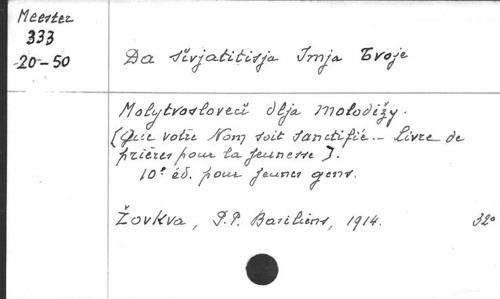 Meester
333
20-50
Da sivjatitisja Imja Tvoje
Molytvosloveči dlja molodižy.
[Que votre Nom soit sanctifié. - Livre de
prières pour la jeunesse].
10e éd. pour jeunes gens.
Žovkva, P.P. Basiliens, 1914. 32°